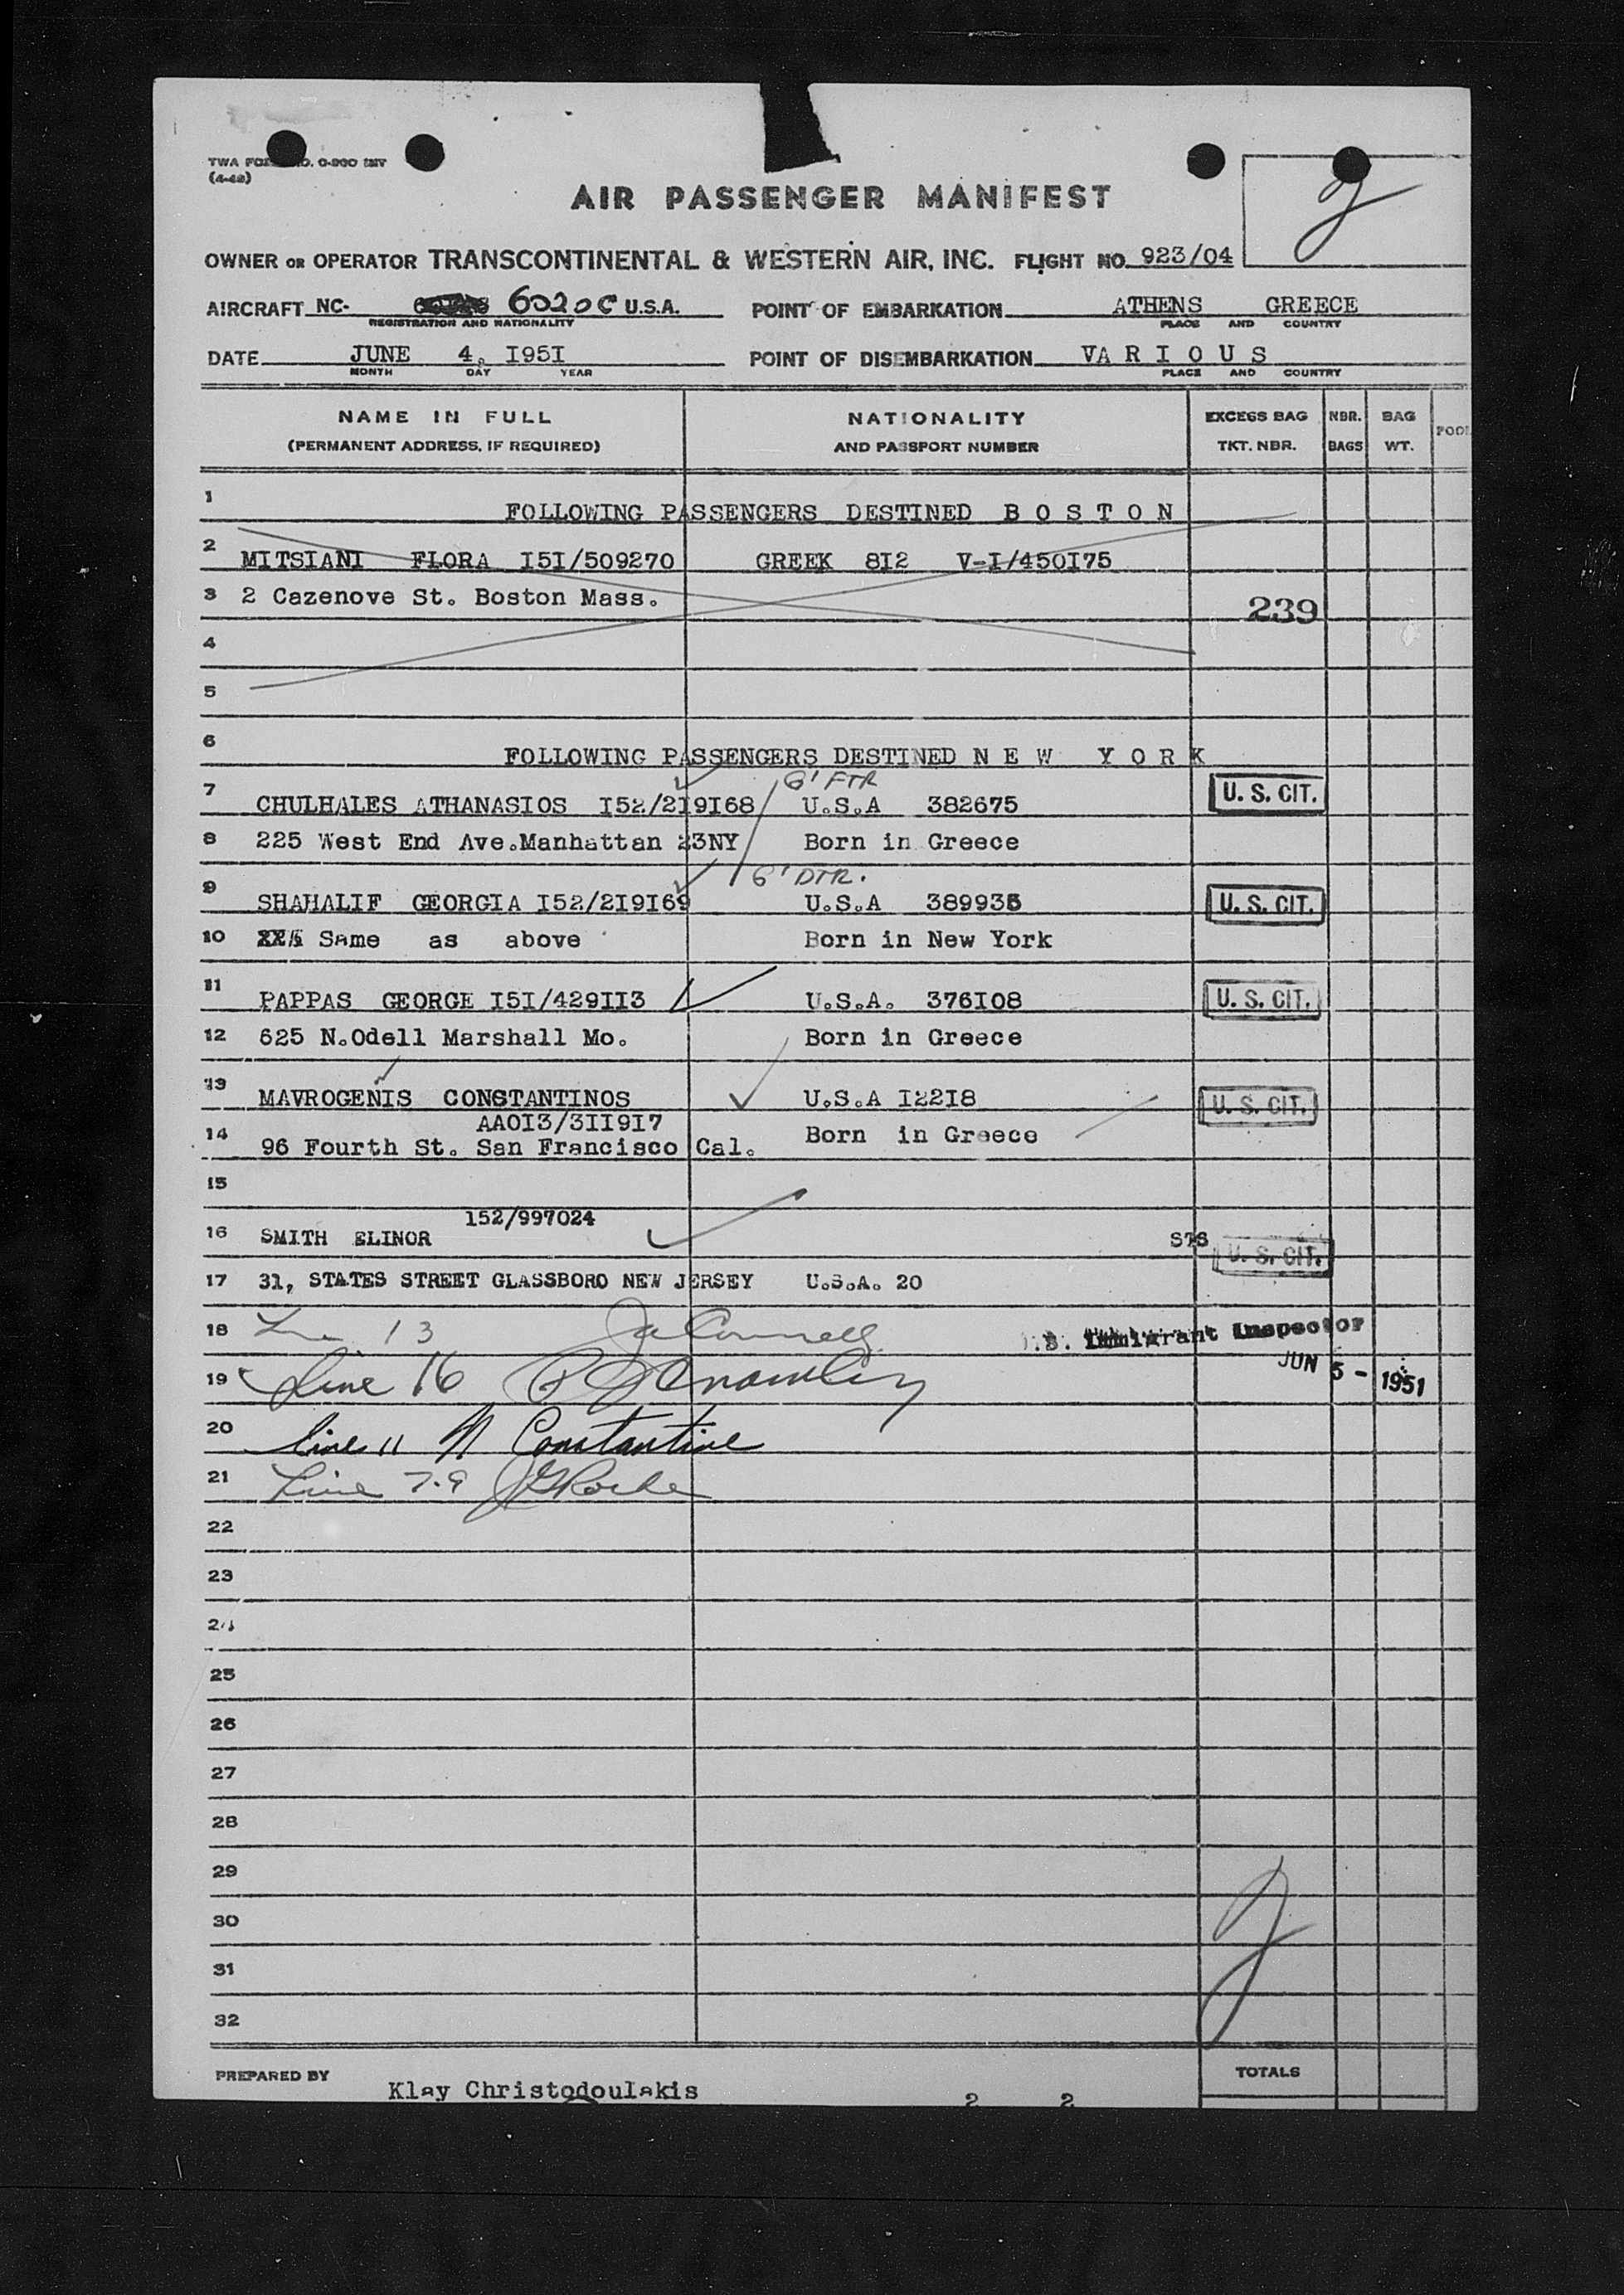 (4-48)
AIR PASSENGER MANIFEST
OWNER OR OPERATOR TRANSCONTINENTAL & WESTERN AIR, INC. FLIGHT NO. 923/04
AIRCRAFT NC- 6020C U.S.A. POINT OF EMBARKATION ATHENS GREECE
REGISTRATION AND NATIONALITY PLACE AND COUNTRY
DATE JUNE 4, I95I POINT OF DISEMBARKATION V A R I O U S
MONTH DAY YEAR PLACE AND COUNTRY
NAME IN FULL NATIONALITY EXCESS BAG NBR. BAG
(PERMANENT ADDRESS, IF REQUIRED) AND PASSPORT NUMBER TKT. NBR. BAGS WT.
1 FOLLOWING PASSENGERS DESTINED B O S T O N
2 MITSIANI FLORA I5I/509270 GREEK 8I2 V-I/450I75
3 2 Cazenove St. Boston Mass. 239
4
5
6 FOLLOWING PASSENGERS DESTINED N E W Y O R K
G' FTR
7 CHULHALES ATHANASIOS I52/2I9I68 U.S.A 382675 U. S. CIT.
8 225 West End Ave.Manhattan 23NY Born in Greece
G' DTR.
9 SHAHALIF GEORGIA I52/2I9I69 U.S.A 389935 U. S. CIT.
10 Same as above Born in New York
11 PAPPAS GEORGE I5I/429II3 U.S.A. 376I08 U. S. CIT.
12 625 N.Odell Marshall Mo. Born in Greece
13 MAVROGENIS CONSTANTINOS U.S.A I22I8 U. S. CIT.
AA0I3/3II9I7
14 96 Fourth St. San Francisco Cal. Born in Greece
15
152/997024
16 SMITH ELINOR STS U. S. CIT.
17 31, STATES STREET GLASSBORO NEW JERSEY U.S.A. 20
18 13 U.S. Immigrant Inspector
JUN 5 - 1951
19 Line 16
20 Line 11 N Constantine
21 Line 7-9 JG Roche
22
23
24
25
26
27
28
29
30
31
32
PREPARED BY TOTALS
Klay Christodoulakis 2 2